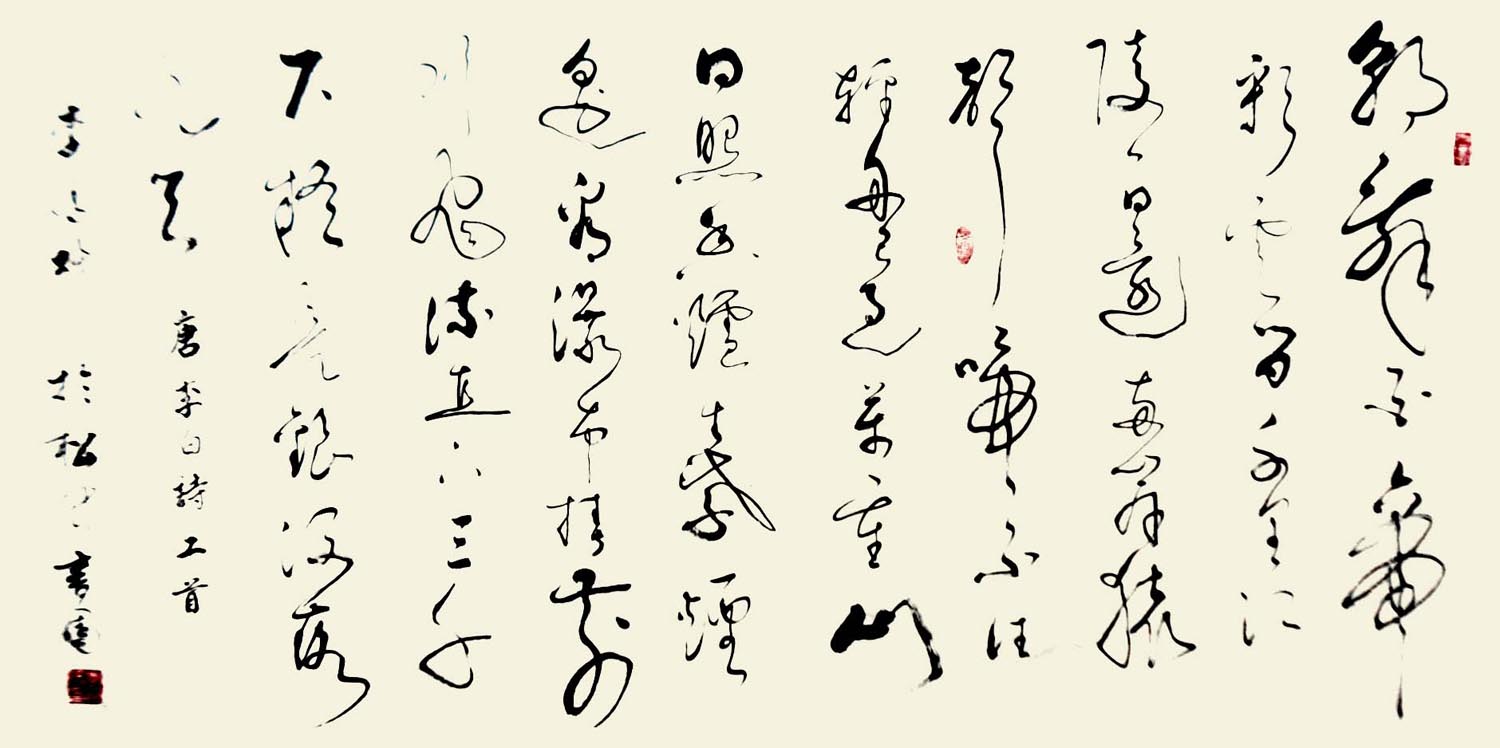 朝辭白帝
彩雲間千里江
陵一日還兩岸猿
聲啼不住
輕舟已過萬重山
日照香爐生紫煙
遙看瀑布掛前
川飛流直下三千
尺疑是銀河落
九天 唐李白詩二首
李 於松 書